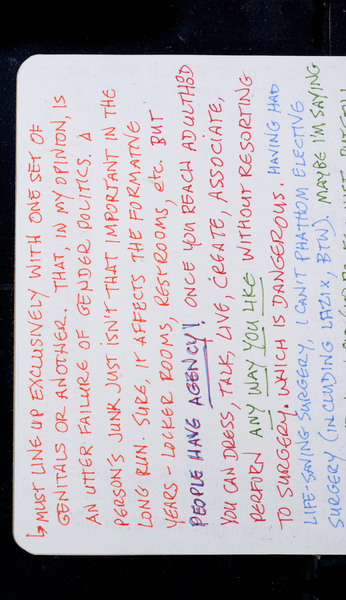 ↳ MUST LINE UP EXCLUSIVELY WITH ONE SET OF
GENITALS OR ANOTHER. THAT, IN MY OPINION, IS
AN UTTER FAILURE OF GENDER POLITICS. A
PERSON'S JUNK JUST ISN'T THAT IMPORTANT IN THE
LONG RUN. SURE, IT AFFECTS THE FORMATIVE
YEARS - LOCKER ROOMS, RESTROOMS, etc. BUT
PEOPLE HAVE AGENCY! ONCE YOU REACH ADULTHOD
YOU CAN DRESS, TALK, LIVE, CREATE, ASSOCIATE,
PERFORM ANY WAY YOU LIKE WITHOUT RESORTING
TO SURGERY. WHICH IS DANGEROUS. HAVING HAD
LIFE-SAVING SURGERY, I CAN'T PHATHOM ELECTIVE
SURGERY (INCLUDING LAZIX, BTW). MAYBE I'M SAYING